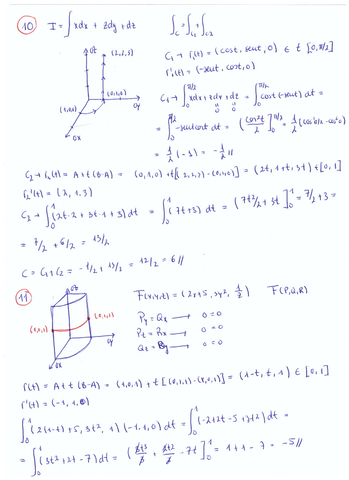 10 I = ∫ xdx + zdy + dz    ∫c = ∫c1 + ∫c2
OZ
(2,2,3)
C1 → r1(t) = (cost, sent, 0) ∈ t [0, π/2]
r1'(t) = (-sent, cost, 0)
(0,1,0)
(1,0,0)
OY
OX
C1 → ∫0^π/2 xdx + zdy + dz = ∫0^π/2 cost (-sent) dt =
0 0
= ∫0^π/2 -sent cost dt = (cos²t/2]0^π/2 = 1/2 (cos²π/2 - cos²0)
= 1/2 (-1) = -1/2 //
C2 → r2(t) = A + t(B-A) = (0,1,0) + t[(2,2,3) - (0,1,0)] = (2t, 1+t, 3t) t[0,1]
r2'(t) = (2,1,3)
C2 → ∫0^1 (2t·2 + 3t·1 + 3) dt = ∫0^1 (7t+3) dt = (7t²/2 + 3t]0^1 = 7/2 + 3 =
= 7/2 + 6/2 = 13/2
C = C1 + C2 = -1/2 + 13/2 = 12/2 = 6 //
11
F(x,y,z) = (2x+5, 3y², 1/z)    F(P,Q,R)
(1,0,1)
(0,1,1)
OY
OX
Py = Qx → 0 = 0
Pz = Rx → 0 = 0
Qz = Ry → 0 = 0
r(t) = A + t(B-A) = (1,0,1) + t[(0,1,1) - (1,0,1)] = (1-t, t, 1) ∈ [0,1]
r'(t) = (-1, 1, 0)
∫0^1 (2(1-t)+5, 3t², 1)(-1,1,0) dt = ∫0^1 (-2+2t-5+3t²) dt =
= ∫0^1 (3t²+2t-7) dt = (3t3/3 + 2t2/2 - 7t]0^1 = 1+1-7 = -5 //